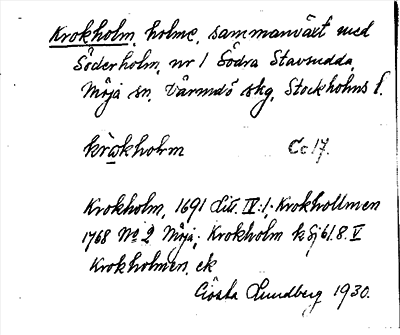 Krokholm, holme, sammanväxt med
Söderholm, nr 1 Södra Stavsudda,
Möja sn, Värmdö skg, Stockholms l.
kròkholm Cc 17.
Krokholm, 1691 Lit. IV:1; Krokhollmen
1768 No 2 Möja; Krokholm k Sj 61.8.V
Krokholmen, ek
Gösta Lundberg 1930.